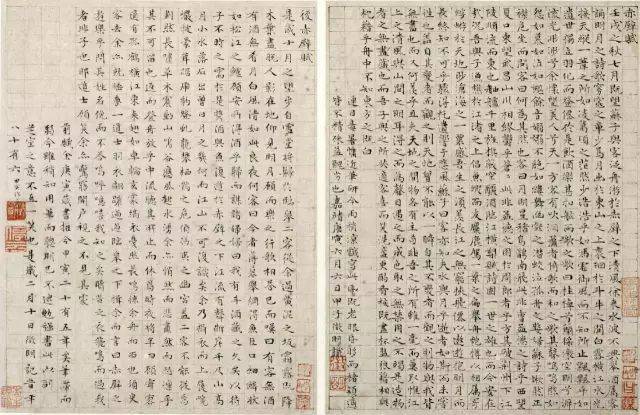 赤壁賦
壬戌之秋七月既望蘇子與客泛舟游於赤壁之下清風徐來水波不興舉酒屬客
誦明月之詩歌窈窕之章少焉月出於東山之上裴回斗牛之間白露橫江水光
接天縱一葦之所如凌萬頃之茫然浩浩乎如馮虛御風而不知所止飄飄乎如
遺世獨立羽化而登僊於是飲酒樂甚扣舷而歌之歌曰桂棹兮蘭槳擊空明兮泝
流光渺渺兮余懷望美人兮天一方客有吹洞簫者倚歌而和之其聲嗚嗚然如
怨如慕如泣如訴餘音嫋嫋不絕如縷舞幽壑之潛蛟泣孤舟之嫠婦蘇子愀然正
襟危坐而問客曰何為其然也客曰月明星稀烏鵲南飛此非曹孟德之詩乎西望
夏口東望武昌山川相繆鬱乎蒼蒼此非孟德之困於周郎者乎方其破荊州下江
陵順流而東也舳艫千里旌旗蔽空釃酒臨江橫槊賦詩固一世之雄也而今安在
哉況吾與子漁樵於江渚之上侶魚鰕而友麋鹿駕一葉之扁舟舉匏尊以相屬寄
蜉蝣於天地渺滄海之一粟哀吾生之須臾羨長江之無窮挾飛僊以遨遊抱明月而
長終知不可乎驟得託遺響於悲風蘇子曰客亦知夫水與月乎逝者如斯而未嘗
往也蓋自其變者而觀之則天地曾不能以一瞬自其不變者而觀之則物與我皆
無盡也而又何羨乎且夫天地之間物各有主苟非吾之所有雖一毫而莫取惟江
上之清風與山間之明月耳得之而為聲目遇之而成色取之無禁用之不竭是造物
者之無盡藏也而吾與子之所共食客喜而笑洗盞更酌肴核既盡杯盤狼籍相與
枕籍乎舟中不知東方之既白
嘉靖庚寅六月六日甲子徵明識
後赤壁賦
是歲十月之望步自雪堂將歸於臨皋二客從余過黃泥之坂霜露既降
木葉盡脫人影在地仰見明月顧而樂之行歌相答已而嘆曰有客無酒
有酒無肴月白風清如此良夜何客曰今者薄暮舉網得魚巨口細鱗狀
如松江之鱸顧安所得酒乎歸而謀諸婦婦曰我有斗酒藏之久矣以待
子不時之需於是攜酒與魚復遊於赤壁之下江流有聲斷岸千尺山高
月小水落石出曾日月之幾何而江山不可復識矣余乃攝衣而上履巉
巖披蒙茸踞虎豹登虯龍攀栖鶻之危巢俯馮夷之幽宮蓋二客不能從焉
劃然長嘯草木震動山鳴谷應風起水湧余亦悄然而悲肅然而恐凜乎
其不可留也返而登舟放乎中流聽其所止而休焉時夜將半四顧寂寥
適有孤鶴橫江東來翅如車輪玄裳縞衣戛然長鳴掠余舟而西也須臾
客去余亦就睡夢一道士羽衣翩躚過臨皋之下揖余而言曰赤壁之
遊樂乎問其姓名俛而不答嗚呼噫嘻我知之矣疇昔之夜飛鳴而過我
者非子也耶道士顧笑余亦驚寤開戶視之不見其處